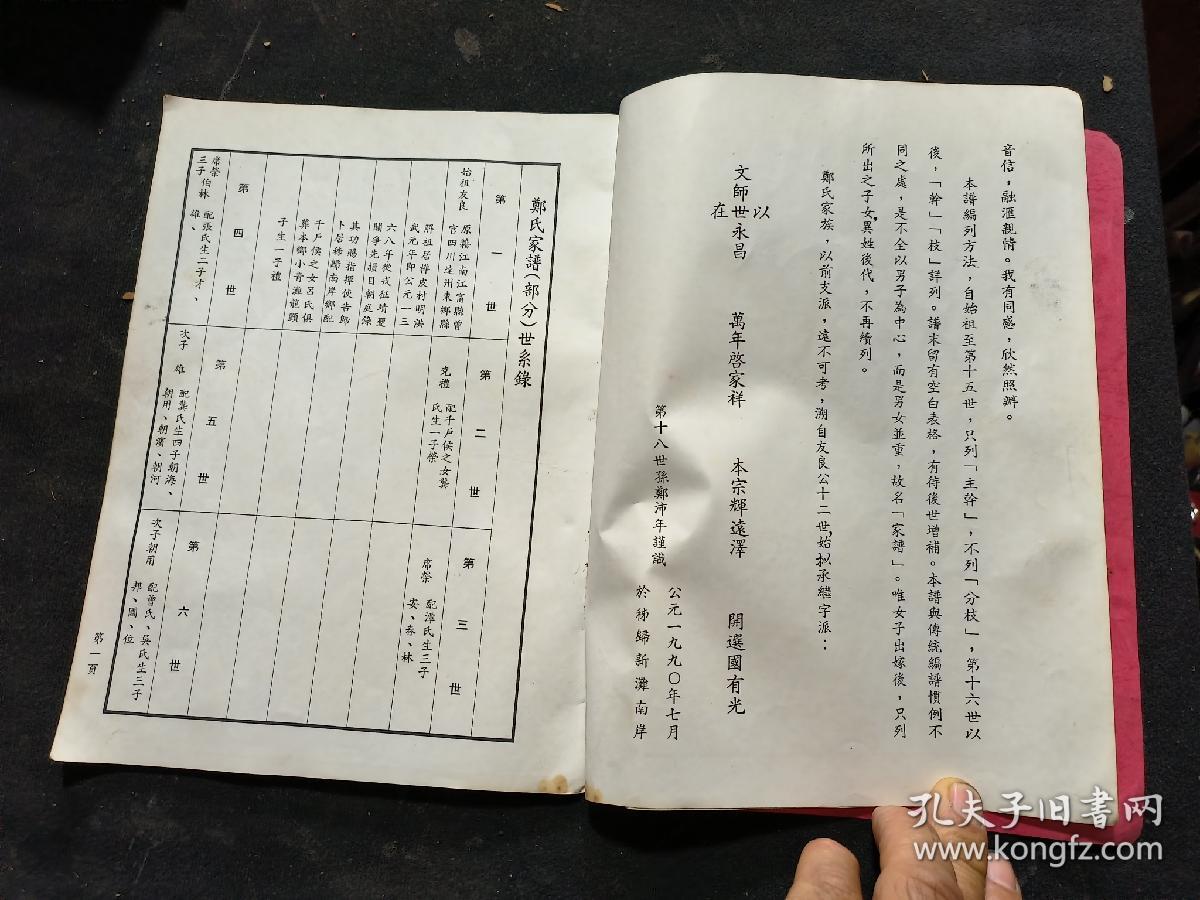 音信，融滙親情。我有同感，欣然照辦。
本譜編列方法，自始祖至第十五世，只列「主幹」，不列「分枝」，第十六世以
後，「幹」「枝」詳列。譜末留有空白表格，有待後世增補。本譜與傳統編譜慣例不
同之處，是不全以男子為中心，而是男女並重，故名「家譜」。唯女子出嫁後，只列
所出之子女，異姓後代，不再續列。
鄭氏家族，以前支派，遠不可考，溯自友良公十二世，始拟承繼字派：
以
文師世永昌 萬年啓家祥 本宗輝遠澤 開選國有光
在
公元一九九〇年七月
第十八世孫鄭沛年謹識 於秭歸新灘南岸
鄭氏家譜（部分）世系錄
第一世
始祖友良
原籍江南江富縣曾
官四川達州東鄉縣
解祖居得皮村明洪
武元年即公元一三
六八年從戎征靖夏
關爭先擅日朝庭錄
其功賜指揮使告師
卜居秭歸南岸鄉配
千户侯之女呂氏俱
葬本鄉小青灘龍頭
子生一子禮
第二世
克禮 配千户侯之女龔
氏生一子榮
第三世
席榮 配潭氏生三子
安、春、林
第四世
席榮
三子伯林 配張氏生二子才、
雄、
第五世
次子 雄 配龔氏生四子朝海、
朝用、朝濱、朝河
第六世
次子朝用 配曾氏、吳氏生三子
邦、國、位
第一頁
孔夫子旧書网
www.kongfz.com